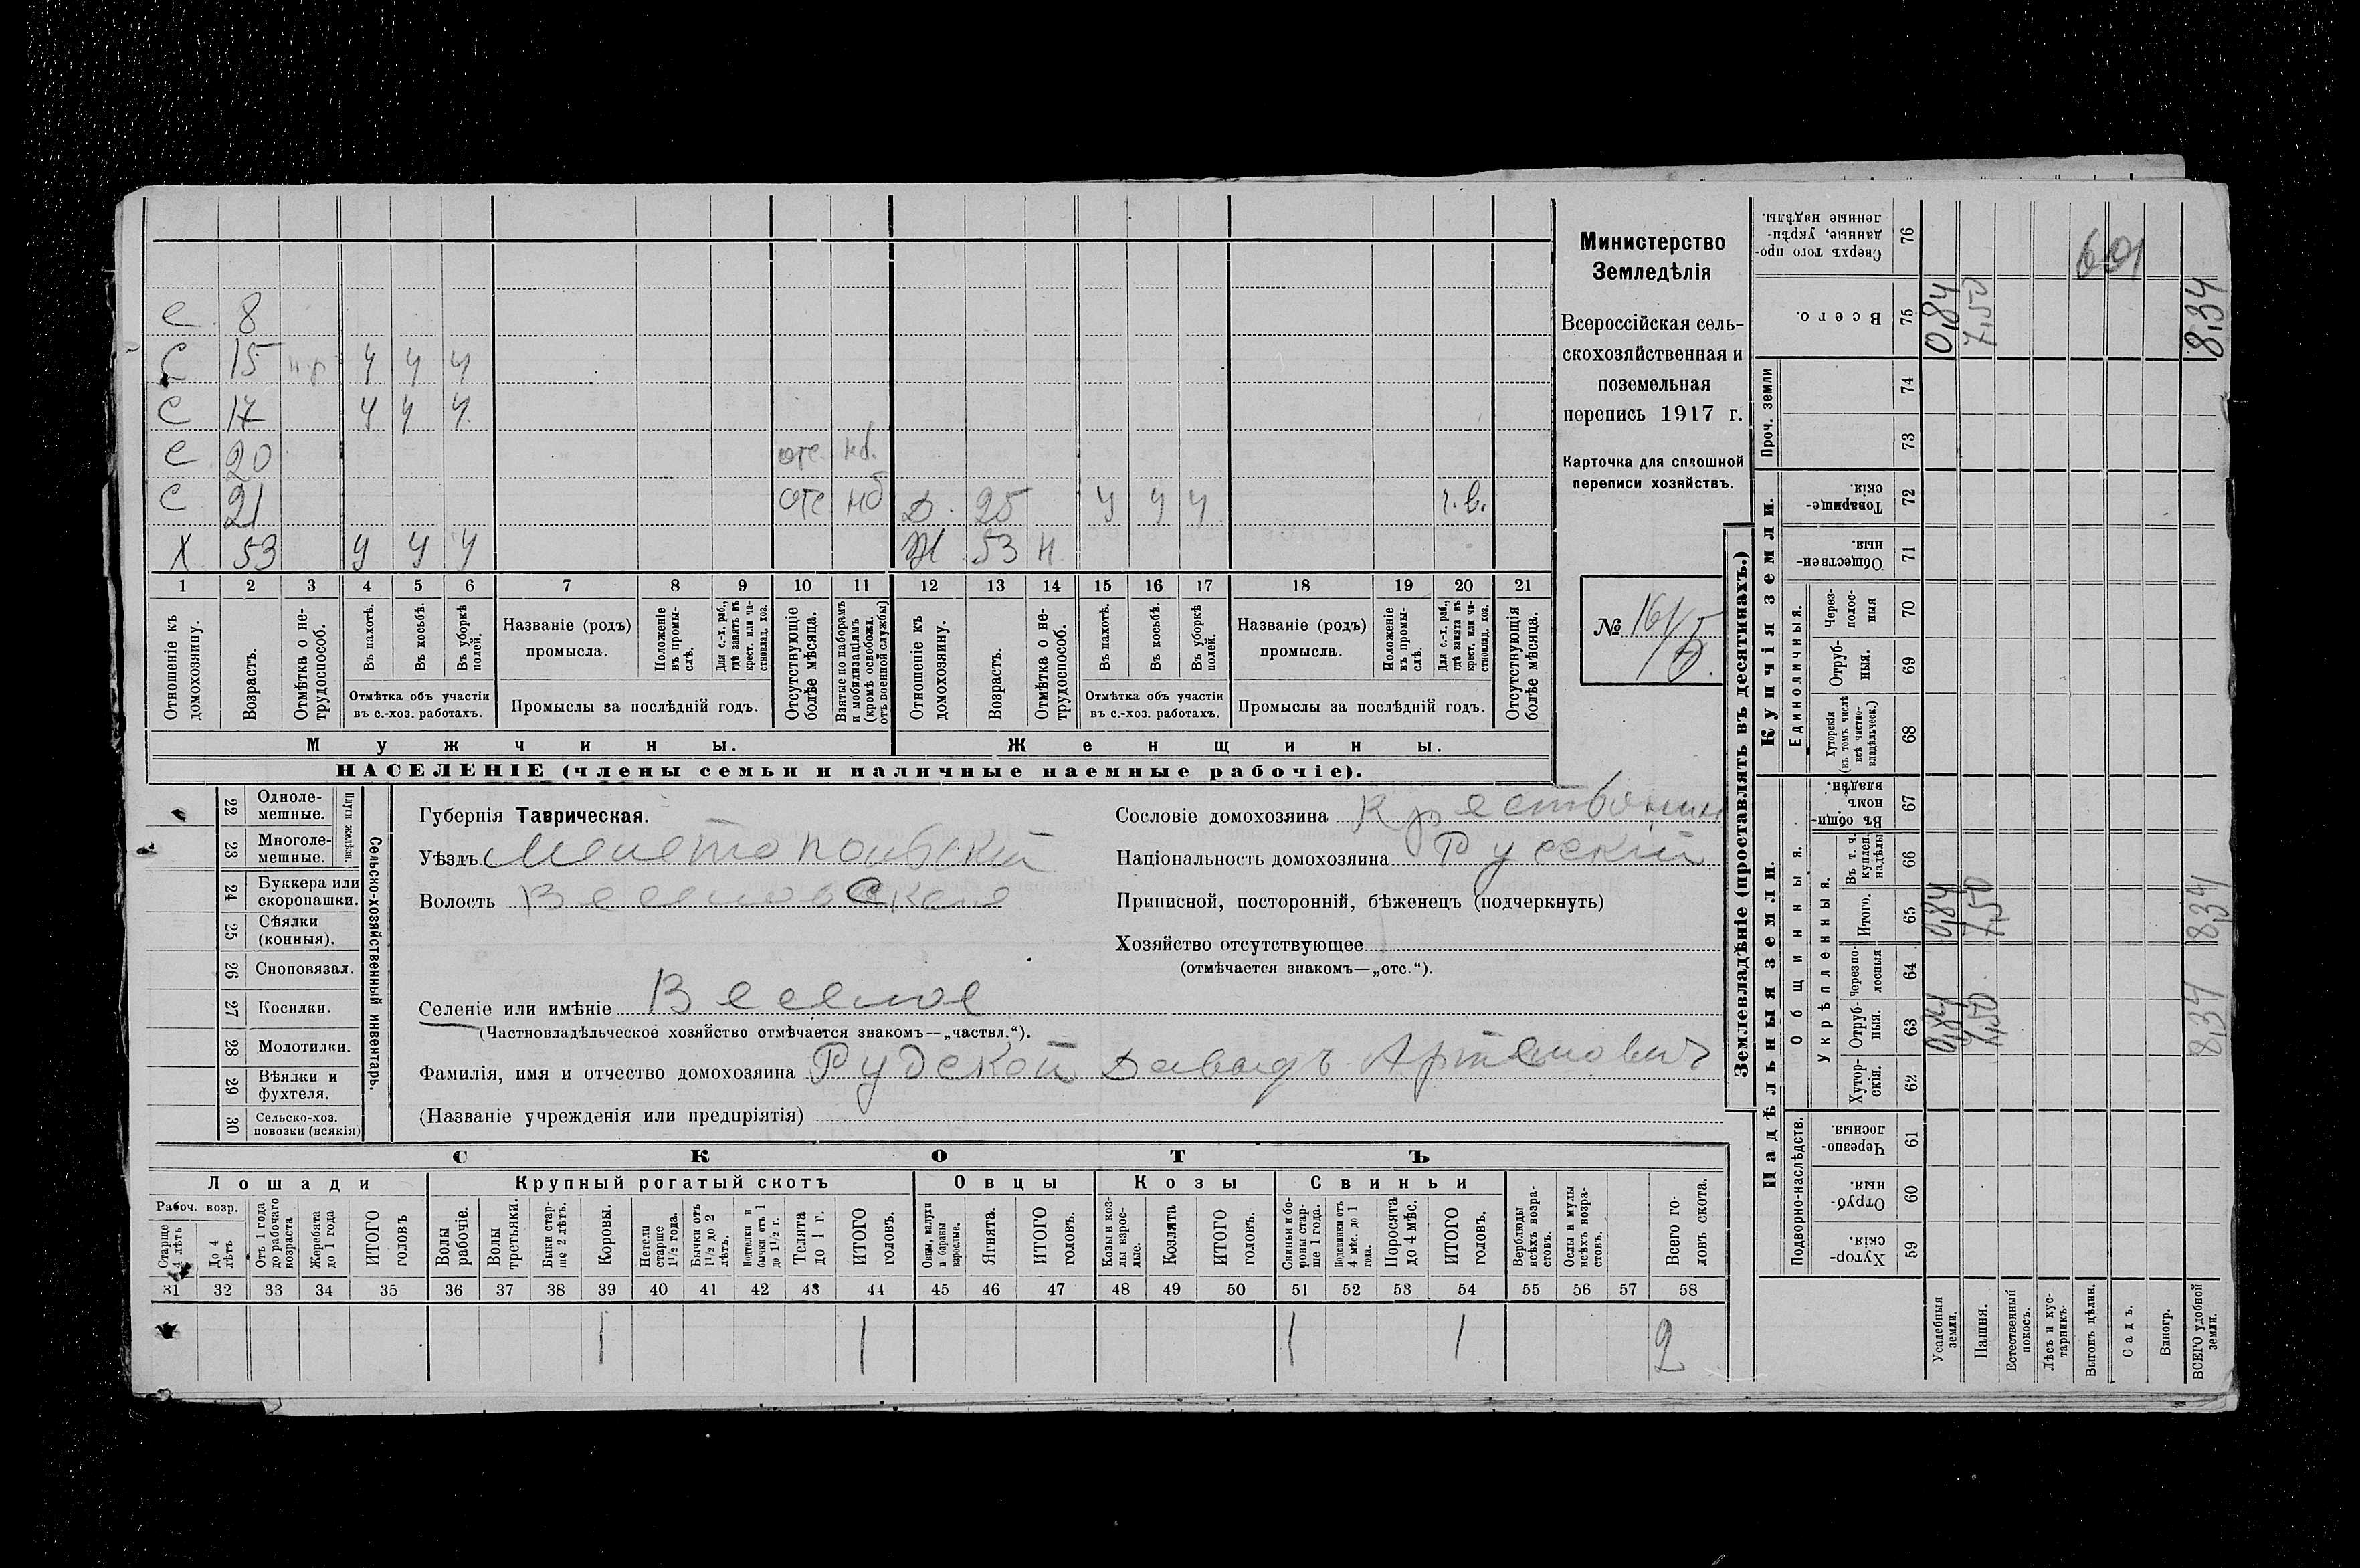 Министерство
Земледѣлія
Всероссійская сель-
скохозяйственная и
поземельная
перепись 1917 г.
Карточка для сплошной
переписи хозяйствъ.
№ 161/5.
С 8
С 15 н.р. у у у
С 17 у у у
С 20 отс нб.
С 21 отс нб Д. 25 у у у г.в.
Х 53 у у у Ж 53 н.
1 2 3 4 5 6 7 8 9 10 11 12 13 14 15 16 17 18 19 20 21
Отношеніе къ домохозяину.
Возрастъ.
Отмѣтка о не-трудоспособ.
Въ пахотѣ.
Въ косьбѣ.
Въ уборкѣ полей.
Отмѣтка объ участіи
въ с.-хоз. работахъ.
Названіе (родъ)
промысла.
Положеніе въ промы-слѣ.
Для с.-х. раб., гдѣ занятъ въ крест. или ча-стновлад. хоз.
Промыслы за послѣдній годъ.
Отсутствующіе болѣе мѣсяца.
Взятые по наборамъ и мобилизаціямъ (кромѣ освобожд. отъ военной службы)
Отношеніе къ домохозяину.
Возрастъ.
Отмѣтка о не-трудоспособ.
Въ пахотѣ.
Въ косьбѣ.
Въ уборкѣ полей.
Отмѣтка объ участіи
въ с.-хоз. работахъ.
Названіе (родъ)
промысла.
Положеніе въ промы-слѣ.
Для с.-х. раб., гдѣ занята въ крест. или ча-стновлад. хоз.
Промыслы за послѣдній годъ.
Отсутствующія болѣе мѣсяца.
Мужчины. Женщины.
НАСЕЛЕНІЕ (члены семьи и наличные наемные рабочіе).
22 Одноле-мешные.
23 Многоле-мешные.
Плуги желѣзн.
24 Буккера или скоропашки.
25 Сѣялки (конныя).
26 Сноповязал.
27 Косилки.
28 Молотилки.
29 Вѣялки и фухтеля.
30 Сельско-хоз. повозки (всякія)
Сельско-хозяйственный инвентарь.
Губернія Таврическая.
Уѣздъ Мелетопольскій
Волость Веселовская
Селеніе или имѣніе Веселое
(Частновладѣльческое хозяйство отмѣчается знакомъ—„частвл.“).
Фамилія, имя и отчество домохозяина Рудской Давидъ Артемович
(Названіе учрежденія или предпріятія)
Сословіе домохозяина Крестьянин
Національность домохозяина Русскій
Приписной, посторонній, бѣженецъ (подчеркнуть)
Хозяйство отсутствующее
(отмѣчается знакомъ—„отс.“).
СКОТЪ
Лошади Крупный рогатый скотъ Овцы Козы Свиньи
Рабоч. возр.
Старше 4 лѣтъ
До 4 лѣтъ
Отъ 1 года до рабочаго возраста
Жеребята до 1 года
ИТОГО головъ
Волы рабочіе.
Волы третьяки.
Быки стар-ше 2 лѣтъ.
Коровы.
Нетели старше 1½ года.
Бычки отъ 1½ до 2 лѣтъ.
Подтелки и бычки отъ 1 до 1½ г.
Телята до 1 г.
ИТОГО головъ.
Овцы, валухи и бараны взрослые.
Ягнята.
ИТОГО головъ.
Козы и коз-лы взрос-лые.
Козлята
ИТОГО головъ.
Свиньи и бо-ровы стар-ше 1 года.
Подсвинки отъ 4 мѣс. до 1 года.
Поросята до 4 мѣс.
ИТОГО головъ.
Верблюды всѣхъ возра-стовъ.
Ослы и мулы всѣхъ возра-стовъ.
Всего го-ловъ скота.
31 32 33 34 35 36 37 38 39 40 41 42 43 44 45 46 47 48 49 50 51 52 53 54 55 56 57 58
1 1 1 1 2
Землевладѣніе (проставлять въ десятинахъ.)
Надѣльныя земли. Купчія земли. Проч. земли
Подворно-наслѣдств.
Общинныя.
Укрѣпленныя.
Единоличныя.
Хутор-скія. 59
Отруб-ныя. 60
Черезпо-лосныя. 61
Хутор-скія. 62
Отруб-ныя. 63 0,84 7,50 8,34
Черезпо-лосныя 64
Итого. 65 0,84 7,50 8,34
Въ т. ч. куплен. надѣлы 66
Въ общин-номъ владѣн. 67
Хуторскія (въ томъ числѣ всѣ частно-владѣльческ.) 68
Отруб-ныя. 69
Через-полос-ныя 70
Обществен-ныя. 71
Товарище-скія. 72
73
74
Всего. 75 0,84 7,50 8,34
Сверхъ того про-данные, укрѣп-ленные надѣлы. 76
Усадебныя земли.
Пашня.
Естественный покосъ.
Лѣсъ и кус-тарникъ.
Выгонъ цѣлин.
Садъ.
Виногр.
ВСЕГО удобной земли.